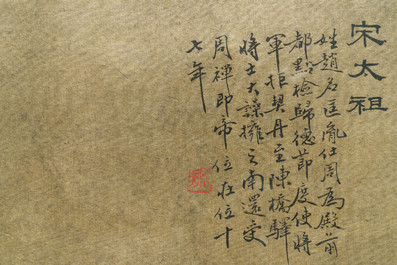 宋太祖
姓趙名匡胤仕周為殿前
都點檢歸德節度使將
軍拒契丹至陳橋驛
將士大譟擁之南還受
周禪即帝位在位十
七年